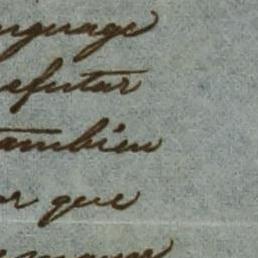 nguage
efutar
tambien
or que